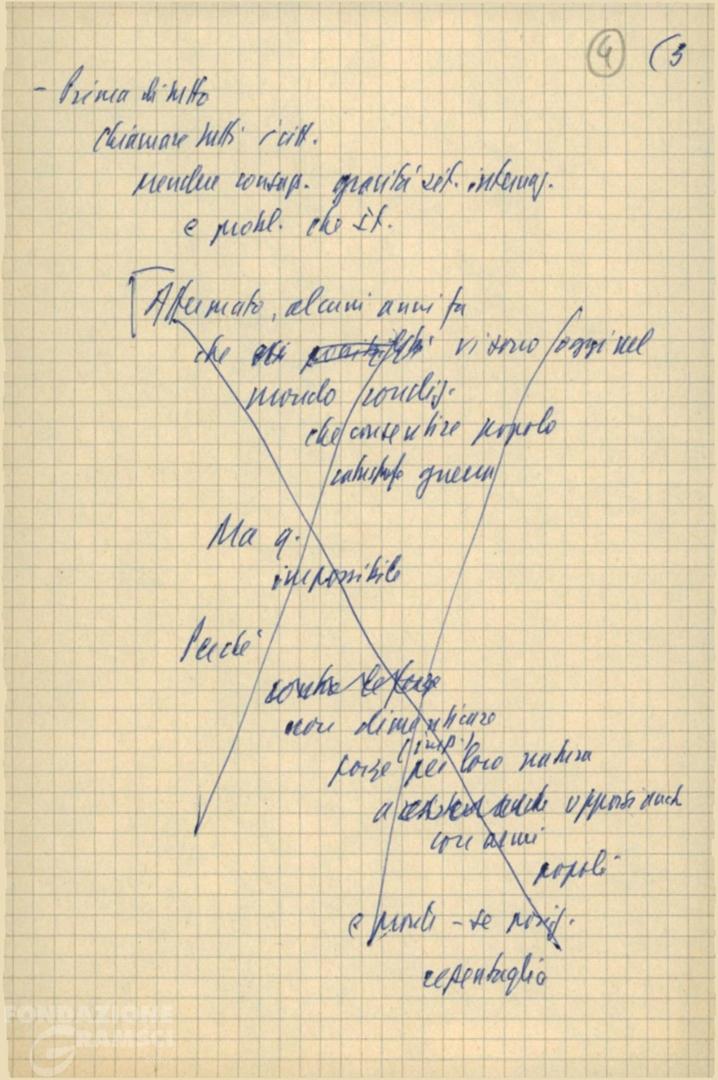 4 (3
- Prima di tutto
chiamare tutti i citt.
rendere consap. gravità sit. internaz.
e probl. che
Affermato, alcuni anni fa
che vi sono oggi nel
mondo condiz.
che consentire popolo
catastrofe guerra
Ma q.
impossibile
Perché
contro le forze
non dimenticare
(imp.)
forze per loro natura
a opporsi anche
con armi
popoli
e pronti - se
repentaglio
FONDAZIONE
GRAMSCI